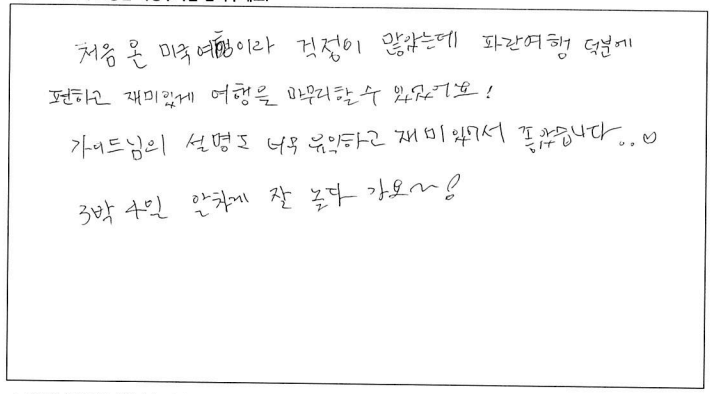 처음 온 미국여행이라 걱정이 많았는데 파란여행 덕분에
편하고 재미있게 여행을 마무리할 수 있었어요!
가이드님의 설명도 너무 유익하고 재미있어서 좋았습니다..♡
3박 4일 알차게 잘 놀다 가요~!